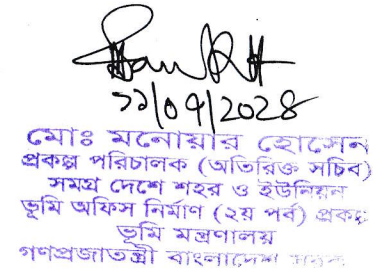 ২১/০৭/২০২৪
মোঃ মনোয়ার হোসেন
প্রকল্প পরিচালক (অতিরিক্ত সচিব)
সমগ্র দেশে শহর ও ইউনিয়ন
ভূমি অফিস নির্মাণ (২য় পর্ব) প্রকল্প
ভূমি মন্ত্রণালয়
গণপ্রজাতন্ত্রী বাংলাদেশ সরকার